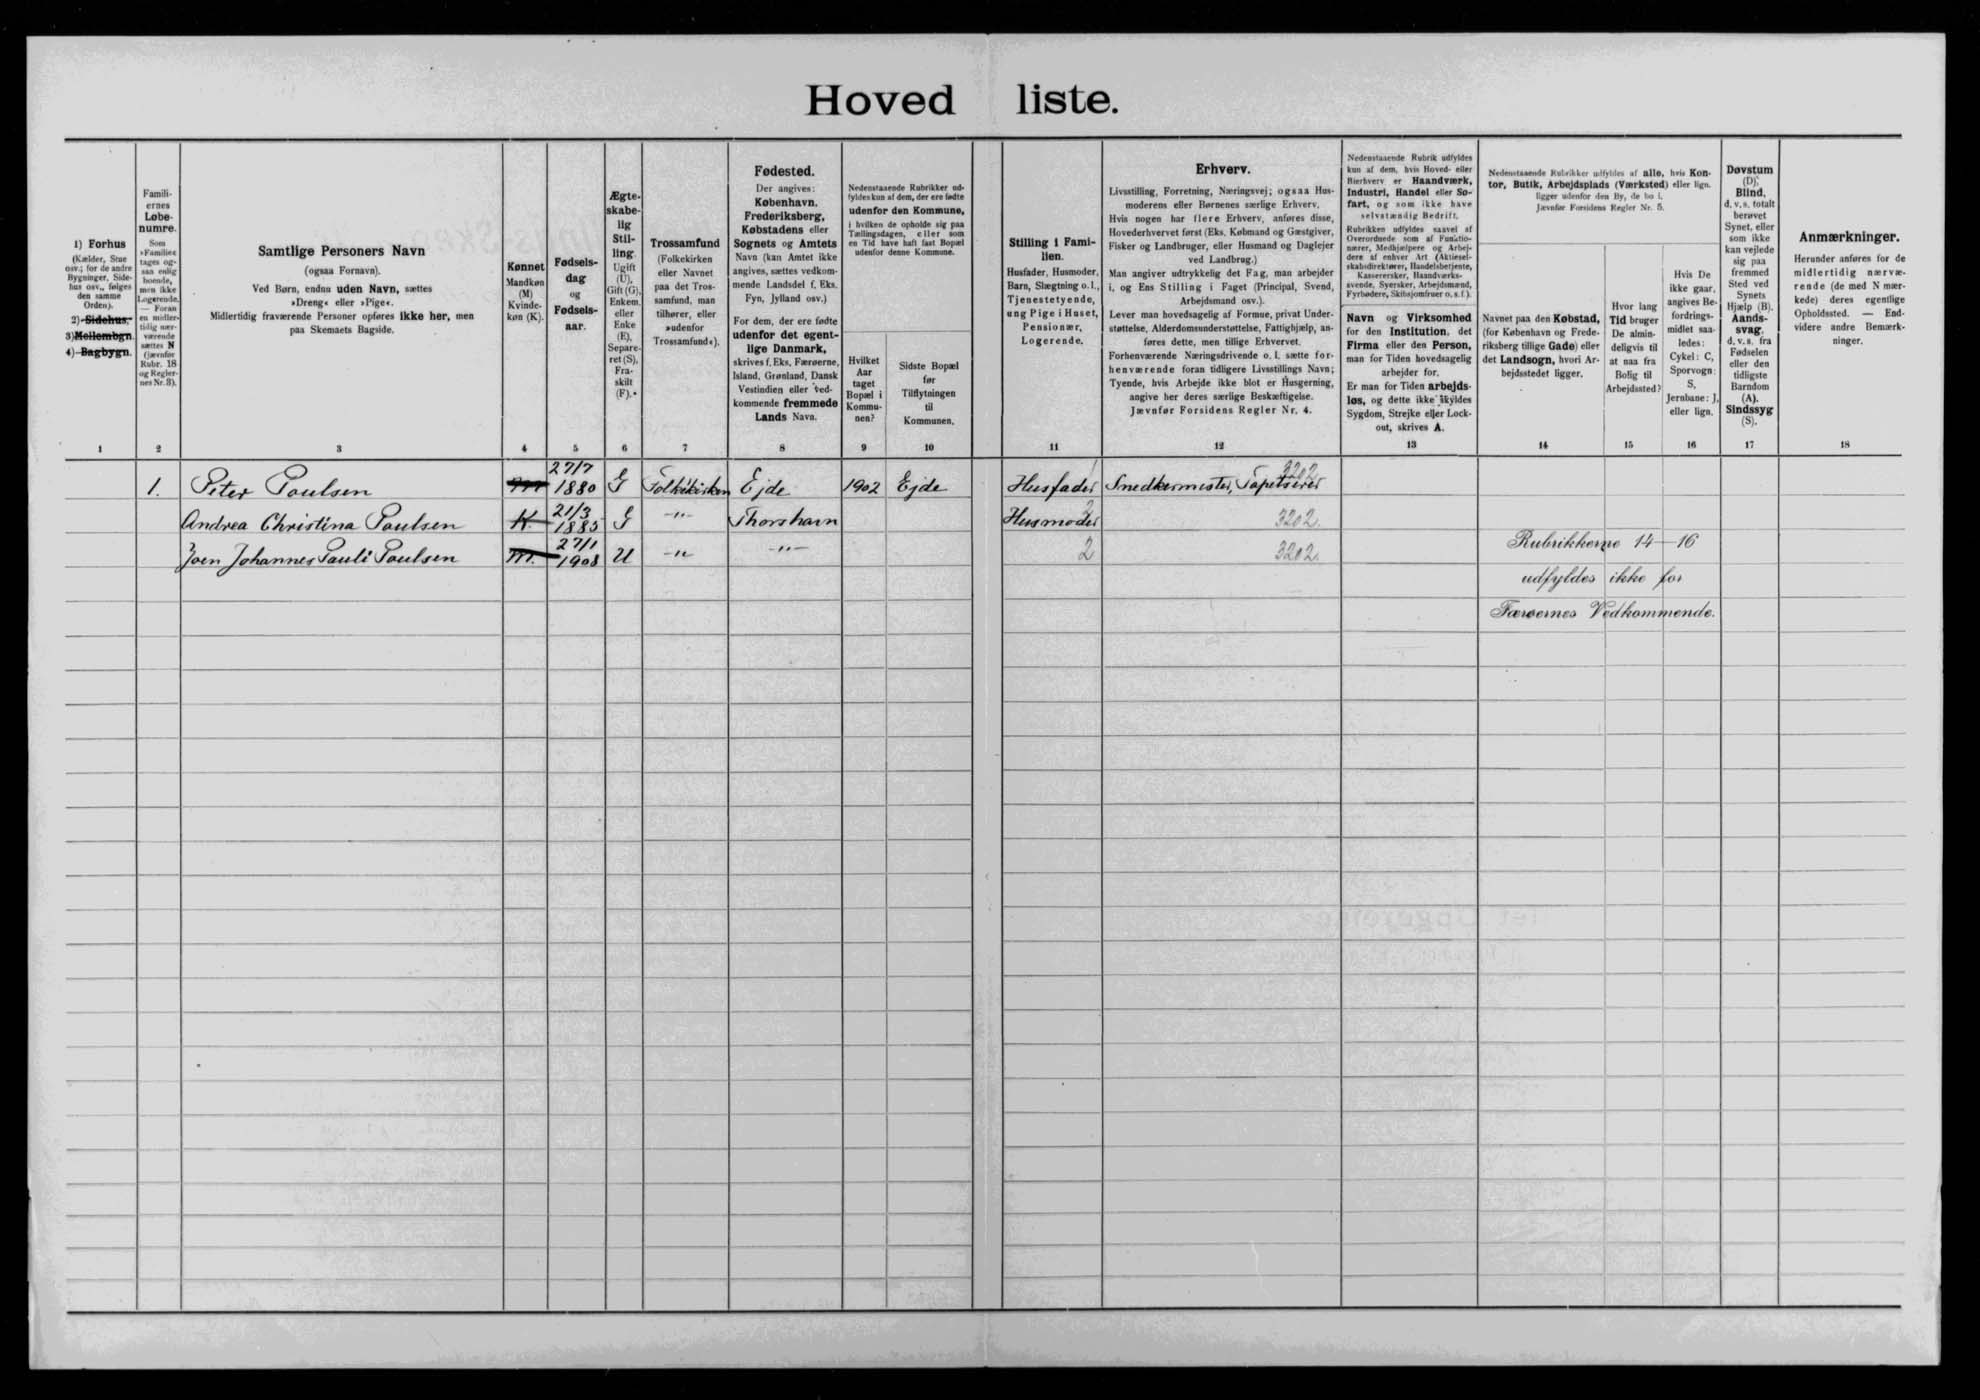 Hoved liste.
1) Forhus
(Kælder, Stue
osv.; for de andre
Bygninger, Side-
hus osv., følges
den samme
Orden).
2) Sidehus,
3) Mellembgn.
4) Bagbygn.
Famili-
ernes
Løbe-
numre.
Som
»Familie«
tages og-
saa enlig
boende,
men ikke
Logerende.
— Foran
en midler-
tidig nær-
værende
sættes N
(jævnfør
Rubr. 18
og Regler-
nes Nr. 8).
Samtlige Personers Navn
(ogsaa Fornavn).
Ved Børn, endnu uden Navn, sættes
»Dreng« eller »Pige«.
Midlertidig fraværende Personer opføres ikke her, men
paa Skemaets Bagside.
Kønnet
Mandkøn
(M)
Kvinde-
køn (K).
Fødsels-
dag
og
Fødsels-
aar.
Ægte-
skabe-
lig
Stil-
ling.
Ugift
(U),
Gift (G),
Enkem.
eller
Enke
(E),
Separe-
ret (S),
Fra-
skilt
(F).
Trossamfund
(Folkekirken
eller Navnet
paa det Tros-
samfund, man
tilhører, eller
»udenfor
Trossamfund«).
Fødested.
Der angives:
København,
Frederiksberg,
Købstadens eller
Sognets og Amtets
Navn (kan Amtet ikke
angives, sættes vedkom-
mende Landsdel f. Eks.
Fyn, Jylland osv.)
For dem, der ere fødte
udenfor det egent-
lige Danmark,
skrives f. Eks. Færøerne,
Island, Grønland, Dansk
Vestindien eller ved-
kommende fremmede
Lands Navn.
Nedenstaaende Rubrikker ud-
fyldes kun af dem, der ere fødte
udenfor den Kommune,
i hvilken de opholde sig paa
Tællingsdagen, eller som
en Tid have haft fast Bopæl
udenfor denne Kommune.
Hvilket
Aar
taget
Bopæl i
Kommu-
nen?
Sidste Bopæl
før
Tilflytningen
til
Kommunen.
Stilling i Fami-
lien.
Husfader, Husmoder,
Barn, Slægtning o. l.,
Tjenestetyende,
ung Pige i Huset,
Pensionær,
Logerende.
Erhverv.
Livsstilling, Forretning, Næringsvej; ogsaa Hus-
moderens eller Børnenes særlige Erhverv.
Hvis nogen har flere Erhverv, anføres disse,
Hovederhvervet først (Eks. Købmand og Gæstgiver,
Fisker og Landbruger, eller Husmand og Daglejer
ved Landbrug.)
Man angiver udtrykkelig det Fag, man arbejder
i, og Ens Stilling i Faget (Principal, Svend,
Arbejdsmand osv.).
Lever man hovedsagelig af Formue, privat Under-
støttelse, Alderdomsunderstøttelse, Fattighjælp, an-
føres dette, men tillige Erhvervet.
Forhenværende Næringsdrivende o. l. sætte for-
henværende foran tidligere Livsstillings Navn;
Tyende, hvis Arbejde ikke blot er Husgerning,
angive her deres særlige Beskæftigelse.
Jævnfør Forsidens Regler Nr. 4.
Nedenstaaende Rubrik udfyldes
kun af dem, hvis Hoved- eller
Bierhverv er Haandværk,
Industri, Handel eller Sø-
fart, og som ikke have
selvstændig Bedrift.
Rubrikken udfyldes saavel af
Overordnede som af Funktio-
nærer, Medhjælpere og Arbej-
dere af enhver Art (Aktiesel-
skabsdirektører, Handelsbetjente,
Kassererskер, Haandværks-
svende, Syersker, Arbejdsmænd,
Fyrbødere, Skibsjomfruer o. s. f.).
Navn og Virksomhed
for den Institution, det
Firma eller den Person,
man for Tiden hovedsagelig
arbejder for.
Er man for Tiden arbejds-
løs, og dette ikke skyldes
Sygdom, Strejke eller Lock-
out, skrives A.
Nedenstaaende Rubrikker udfyldes af alle, hvis Kon-
tor, Butik, Arbejdsplads (Værksted) eller lign.
ligger udenfor den By, de bo i.
Jævnfør Forsidens Regler Nr. 5.
Navnet paa den Købstad,
(for København og Frede-
riksberg tillige Gade) eller
det Landsogn, hvori Ar-
bejdsstedet ligger.
Hvor lang
Tid bruger
De almin-
deligvis til
at naa fra
Bolig til
Arbejdssted?
Hvis De
ikke gaar,
angives Be-
fordrings-
midlet saa-
ledes:
Cykel: C,
Sporvogn:
S,
Jernbane: J,
eller lign.
Døvstum
(D);
Blind,
d. v. s. totalt
berøvet
Synet, eller
som ikke
kan vejlede
sig paa
fremmed
Sted ved
Synets
Hjælp (B).
Aands-
svag,
d. v. s. fra
Fødselen
eller den
tidligste
Barndom
(A).
Sindssyg
(S).
Anmærkninger.
Herunder anføres for de
midlertidig nærvæ-
rende (de med N mær-
kede) deres egentlige
Opholdssted. — End-
videre andre Bemærk-
ninger.
1 2 3 4 5 6 7 8 9 10 11 12 13 14 15 16 17 18
27/7 1 3202.
1. Peter Poulsen M 1880 G Folkekirken Ejde 1902 Ejde Husfader Snedkermester, Tapetserer
21/3 2
Andrea Christina Poulsen K. 1885 G -"- Thorshavn Husmoder 3202.
27/1
Joen Johannes Pauli Poulsen M. 1908 U -"- -"- 2 3202.
Rubrikkerne 14-16
udfyldes ikke for
Færøernes Vedkommende.